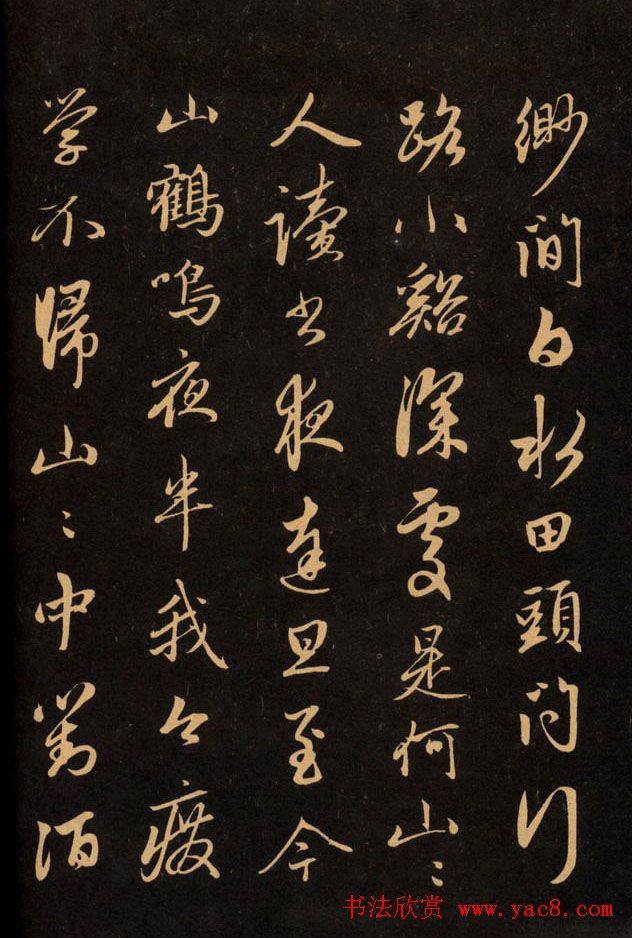 緲間白水田頭問行
路小谿深處是何山〻
人讀书夜達旦至今
山鶴鳴夜半我今廢
学不歸山〻中對酒
书法欣赏 www.yac8.com